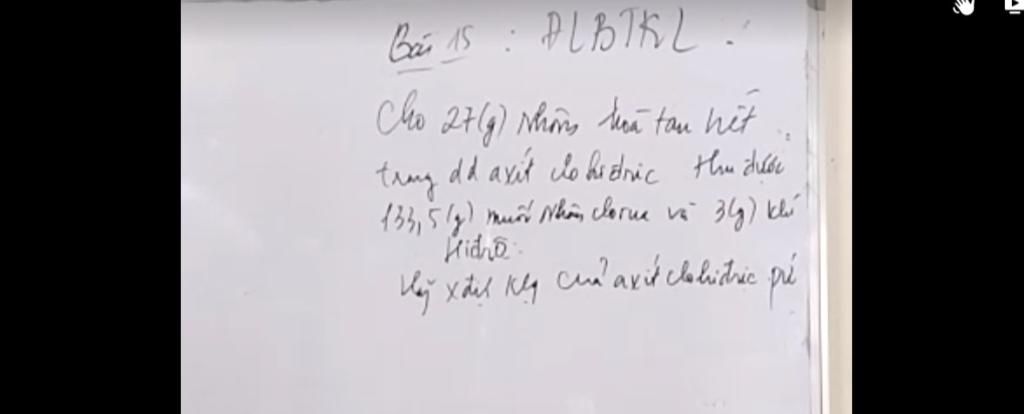 Bài 15 : ĐLBTKL .
Cho 27(g) Nhôm hoà tan hết
trong dd axít clohiđric thu được
133,5(g) muối Nhôm clorua và 3(g) khí
Hiđrô.
Hãy xđịnh klg của axít clohiđric pứ